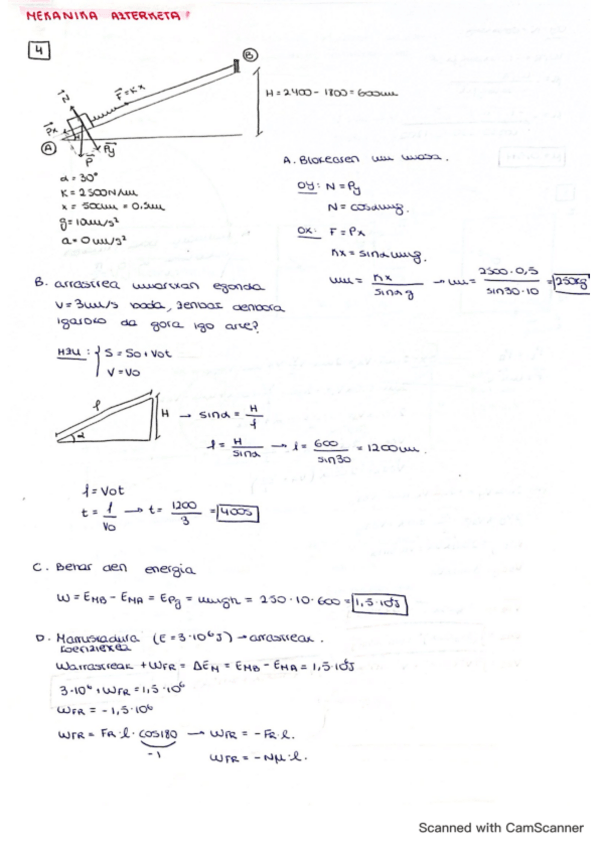 MEKANIKA AZTERKETA:
4
B
H = 2400 - 1800 = 600m
N
F = Kx
Px
A
P
Py
α = 30°
K = 2500N/m
x = 50cm = 0,5m
g = 10m/s²
a = 0m/s²
A. Blokearen m masa.
OY: N = Py
N = cosαmg.
OX: F = Px
kx = sinαmg.
m = kx / sinα g → m = 2500·0,5 / sin30·10 = 250kg
B. arrastrea martxan egonda
v = 3m/s bada, zenbat denbora
igaroko da gora igo arte?
HZU: S = So + Vot
V = Vo
l
H
α
→ sinα = H / l
l = H / sinα → l = 600 / sin30 = 1200m.
l = Vot
t = l / Vo → t = 1200 / 3 = 400s
C. Behar den energia
W = EMB - EMA = EPg = mgh = 250·10·600 = 1,5·10⁶J
D. Marruskadura (E = 3·10⁶J) → arrastreak.
koefizientea
Warrastreak + WFR = ΔEM = EMB - EMA = 1,5·10⁶J
3·10⁶ + WFR = 1,5·10⁶
WFR = -1,5·10⁶
WFR = FR·l·cos180 → WFR = -FR·l.
-1
WFR = -Nμ·l.
Scanned with CamScanner